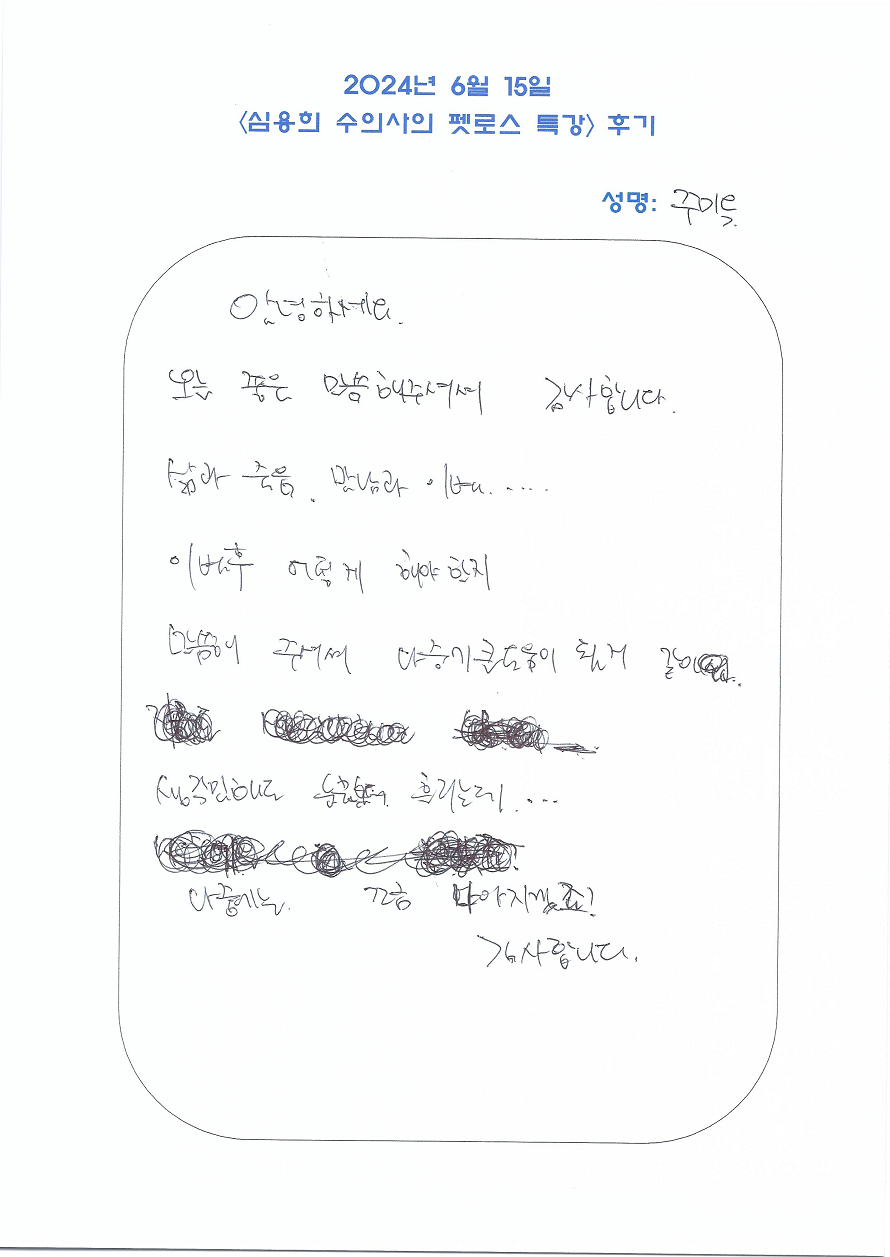 2024년 6월 15일
<심용희 수의사의 펫로스 특강> 후기
성명:
안녕하세요.
오늘 좋은 말씀해주셔서 감사합니다.
삶과 죽음. 만남과 이별.....
이별후 어떻게 해야 할지
말씀해 주셔서 나중에 큰 도움이 될거 같아
생각만해도 눈물부터 흐르는데...
나중에는 조금 나아지겠죠?
감사합니다.